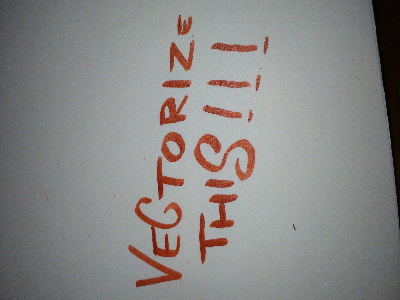 VECTORIZE
THIS!!!